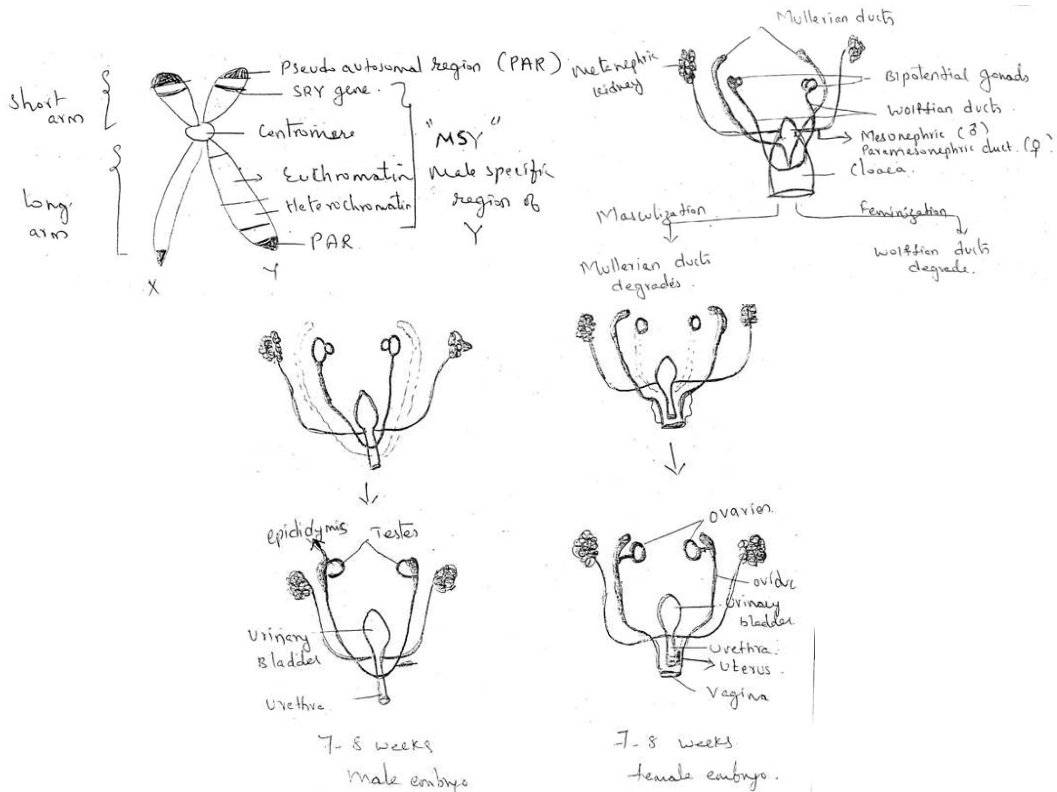 Pseudo autosomal region (PAR)
SRY gene.
Short
arm
Centromere
"MSY"
Male specific
region of
Y
Euchromatin
Heterochromatin
PAR
Long
arm
X
Y
Mullerian ducts
Metanephric
kidney
Bipotential gonads
Wolffian ducts
Mesonephric (♂)
Paramesonephric duct. (♀)
Cloaca
Masculization
Feminization
Mullerian ducts
degrades.
Wolffian ducts
degrade.
epididymis
Testes
Urinary
Bladder
Urethra
7-8 weeks
Male embryo
Ovaries
oviduc
Urinary
bladder
Urethra
Uterus
Vagina
7-8 weeks
female embryo.